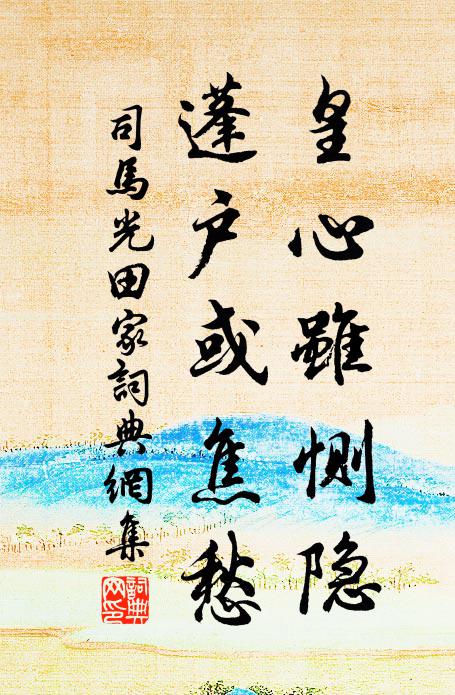 皇心雖惻隐
蓬户或焦愁
司馬光田家詞典網集
詞典